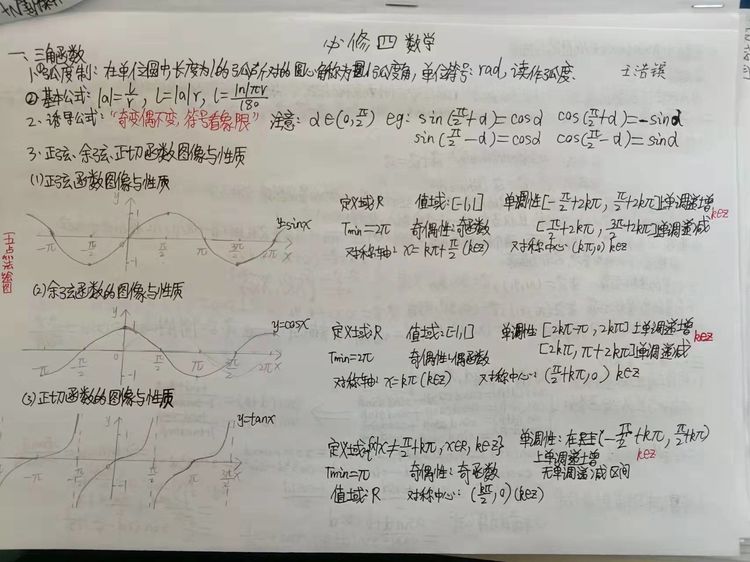 必修四数学
一、三角函数
1.①弧度制：在单位圆中长度为1的弧所对的圆心角称为1弧度角，单位符号：rad，读作弧度.
②基本公式：|α|=l/r，l=|α|r，l=|n|πr/180
2、诱导公式："奇变偶不变，符号看象限" 注意：α∈(0,π/2) eg：sin(π/2+α)=cosα cos(π/2+α)=-sinα
sin(π/2-α)=cosα cos(π/2-α)=sinα
3.正弦、余弦、正切函数图像与性质
(1)正弦函数图像与性质
五点法绘图
y=sinx
1 -π -π/2 0 π/2 π 3π/2 2π x -1
定义域：R 值域：[-1,1] 单调性[-π/2+2kπ,π/2+2kπ]上单调递增
Tmin=2π 奇偶性：奇函数 [π/2+2kπ,3π/2+2kπ]上单调递减 k∈Z
对称轴：x=kπ+π/2(k∈Z) 对称中心：(kπ,0) k∈Z
(2)余弦函数的图像与性质
y=cosx
1 -π -π/2 0 π/2 π 3π/2 2π x -1
定义域：R 值域：[-1,1] 单调性[2kπ-π,2kπ]上单调递增
Tmin=2π 奇偶性：偶函数 [2kπ,π+2kπ]单调递减 k∈Z
对称轴：x=kπ(k∈Z) 对称中心：(π/2+kπ,0) k∈Z
(3)正切函数的图像与性质
y=tanx
1 -π -π/2 0 π/2 π 3π/2 x -1
定义域{x|x≠π/2+kπ,x∈R,k∈Z} 单调性：在(-π/2+kπ,π/2+kπ)
上单调递增 k∈Z
Tmin=π 奇偶性：奇函数 无单调递减区间
值域：R 对称中心：(kπ/2,0)(k∈Z)